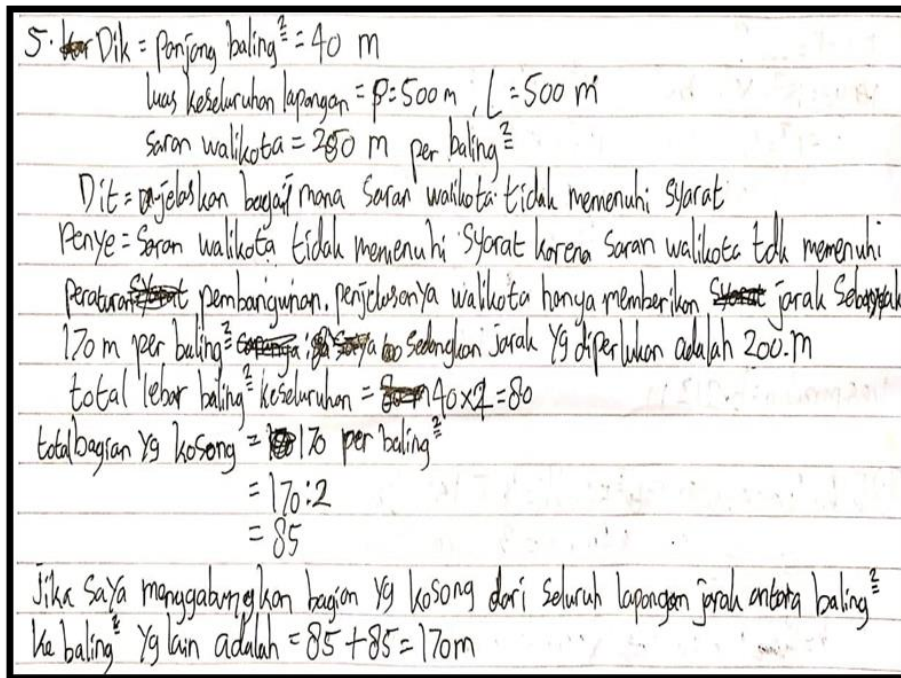 5. Dik = panjang baling² = 40 m
luas keseluruhan lapangan = P = 500 m, L = 500 m
saran walikota = 250 m per baling²
Dit = jelaskan bagaimana saran walikota tidak memenuhi syarat
Penye = saran walikota tidak memenuhi syarat karena saran walikota tdk memenuhi
peraturan pembangunan. penjelasanya walikota hanya memberikan jarak sebanyak
170 m per baling² sedangkan jarak yg diperlukan adalah 200.m
total lebar baling² keseluruhan = 40x2 = 80
total bagian yg kosong = 170 per baling²
= 170 : 2
= 85
Jika saya menggabungkan bagian yg kosong dari seluruh lapangan jarak antara baling²
ke baling² yg lain adalah = 85 + 85 = 170 m